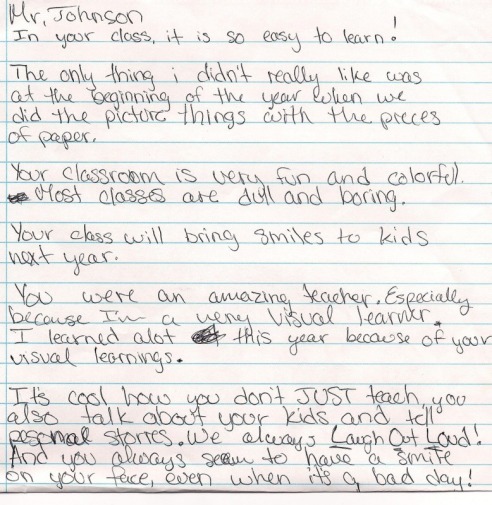 Mr. Johnson
In your class, it is so easy to learn!
The only thing i didn't really like was
at the beginning of the year when we
did the picture things with the pieces
of paper.
Your classroom is very fun and colorful.
Most classes are dull and boring.
Your class will bring smiles to kids
next year.
You were an amazing teacher. Especially
because I'm a very visual learner.
I learned alot this year because of your
visual learnings.
It's cool how you don't JUST teach, you
also talk about your kids and tell
personal stories. We always Laugh Out Loud!
And you always seem to have a smile
on your face, even when it's a bad day!